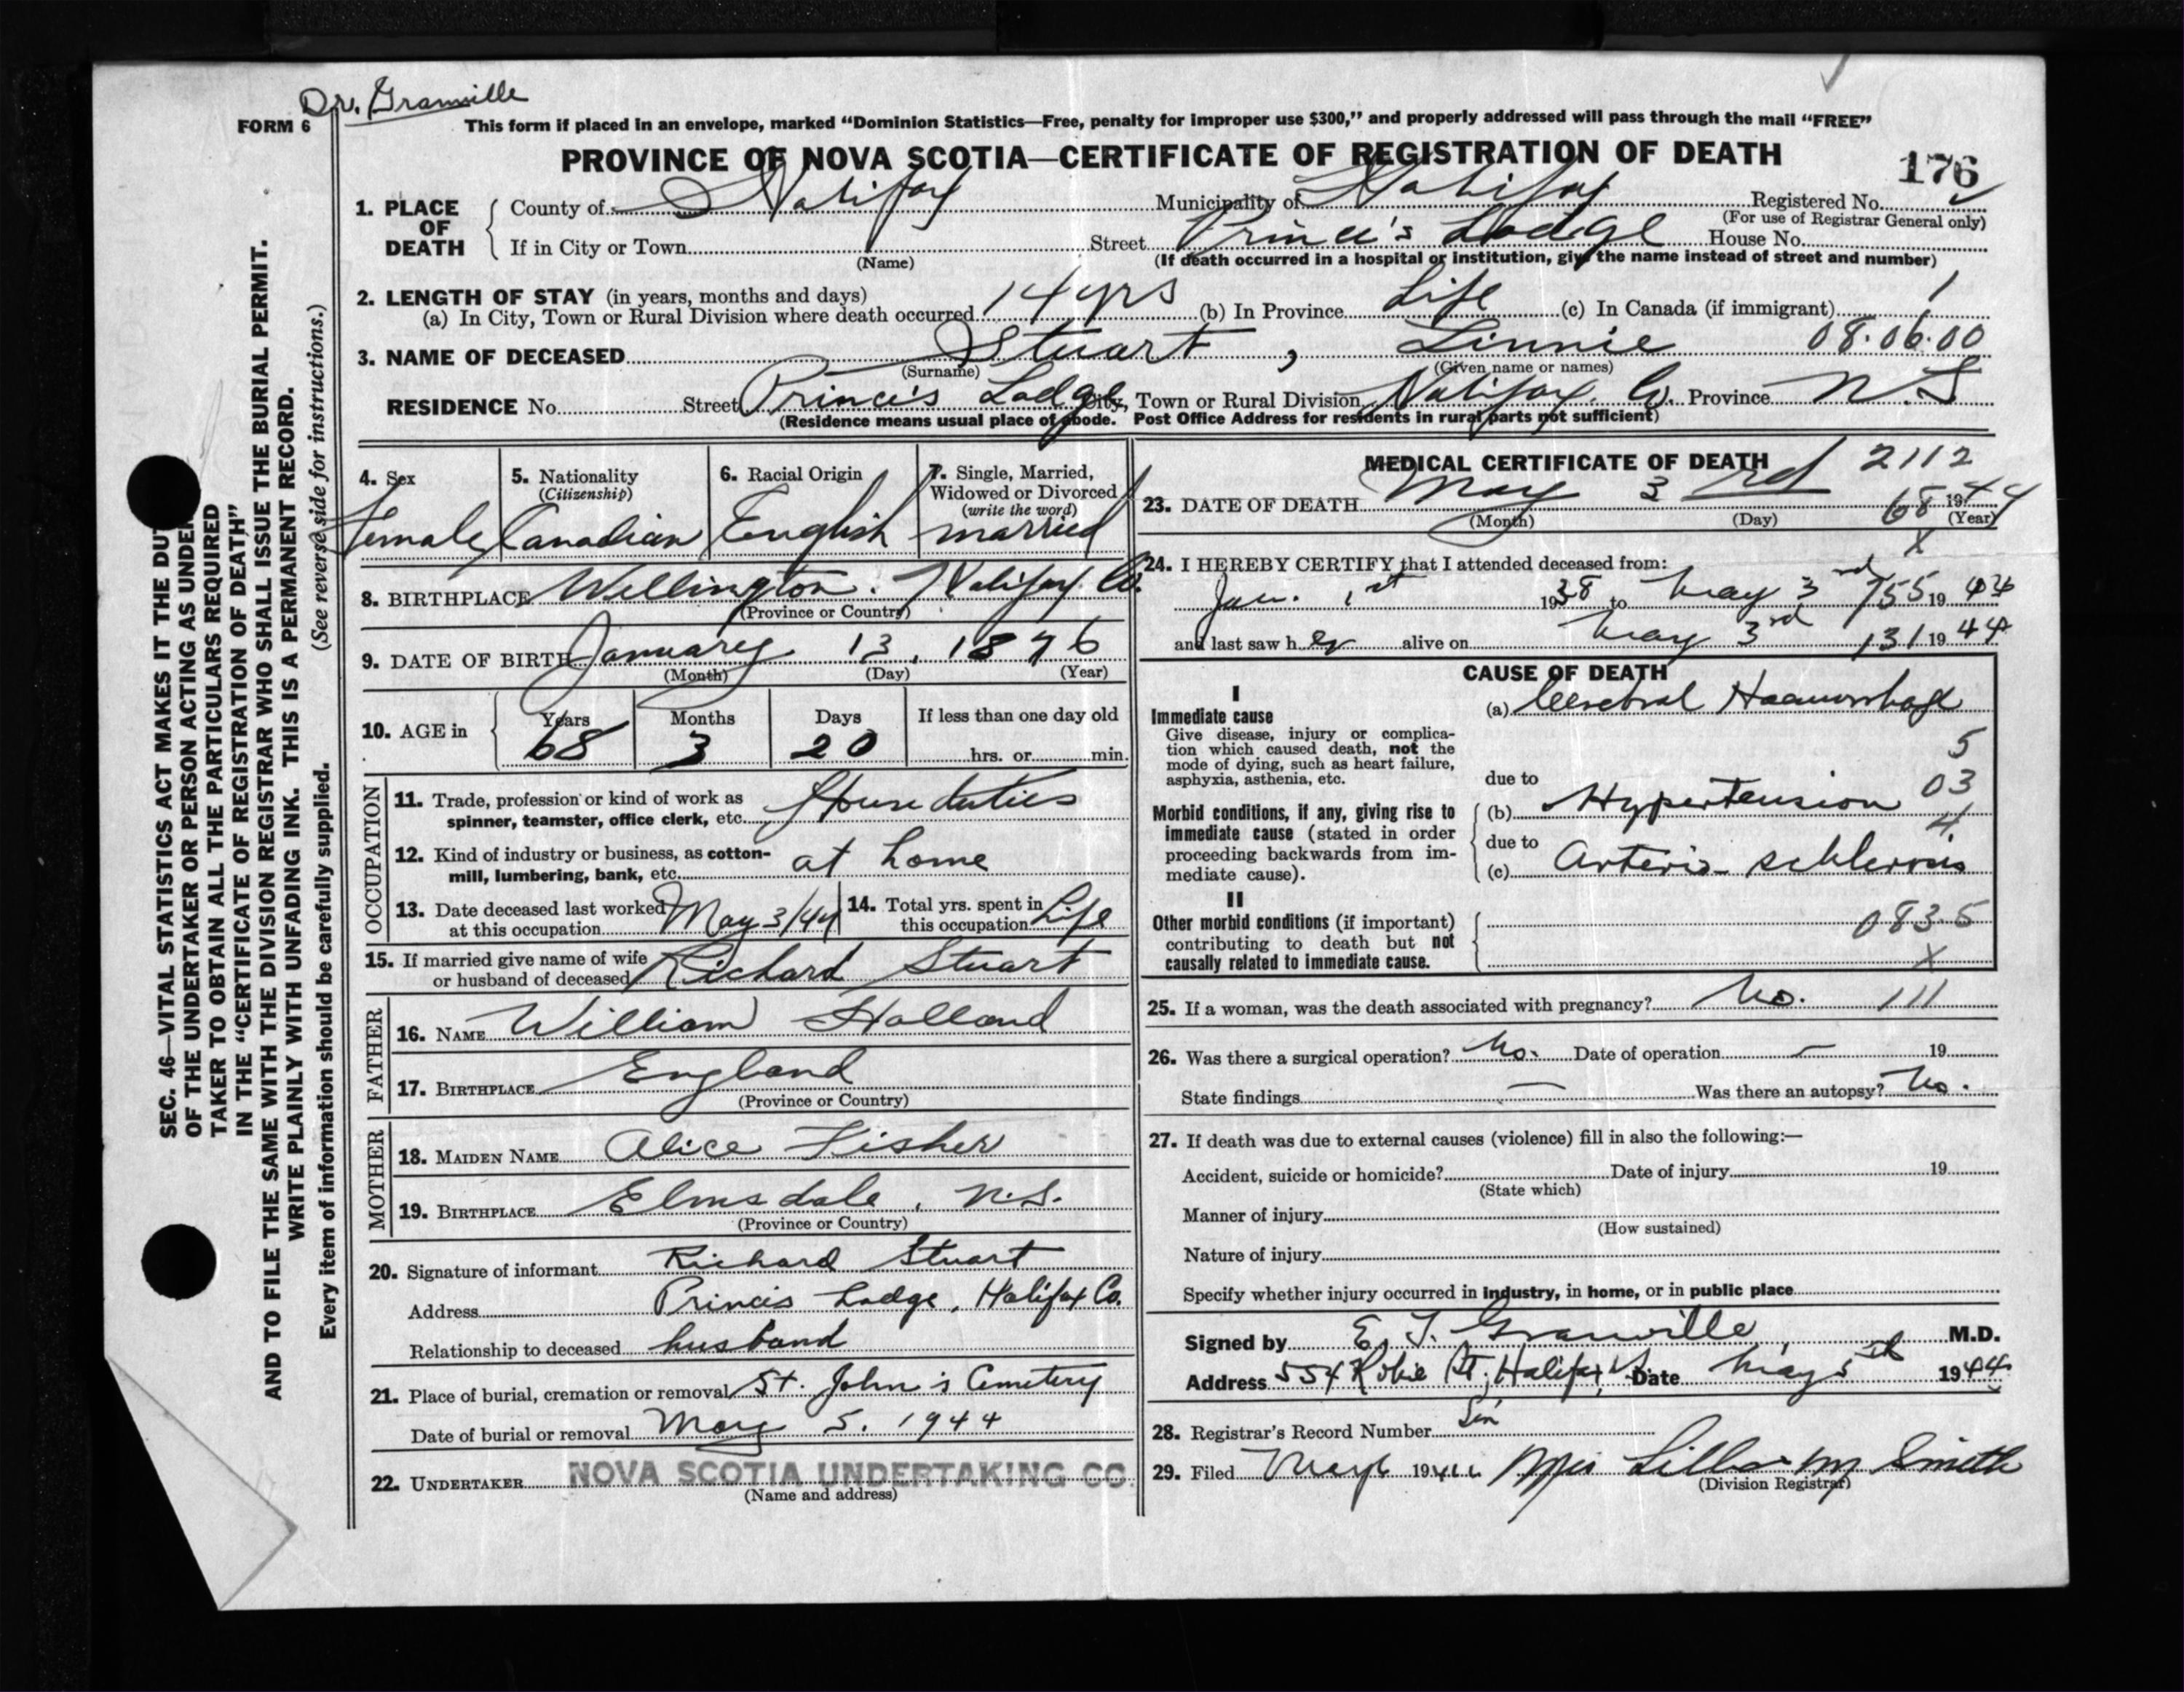 Dr. Granville
FORM 6
This form if placed in an envelope, marked “Dominion Statistics—Free, penalty for improper use $300,” and properly addressed will pass through the mail “FREE”
PROVINCE OF NOVA SCOTIA—CERTIFICATE OF REGISTRATION OF DEATH
176
1. PLACE OF DEATH
County of Halifax Municipality of Halifax Registered No.
(For use of Registrar General only)
If in City or Town Street Prince's Lodge House No.
(Name) (If death occurred in a hospital or institution, give the name instead of street and number)
2. LENGTH OF STAY (in years, months and days)
(a) In City, Town or Rural Division where death occurred 14 yrs (b) In Province Life (c) In Canada (if immigrant) 1
3. NAME OF DECEASED Stuart, Linnie 08.06.00
(Surname) (Given name or names)
RESIDENCE No. Street Prince's Lodge City, Town or Rural Division Halifax Co. Province N.S
(Residence means usual place of abode. Post Office Address for residents in rural parts not sufficient)
4. Sex
Female
5. Nationality
(Citizenship)
Canadian
6. Racial Origin
English
7. Single, Married,
Widowed or Divorced
(write the word)
married
8. BIRTHPLACE Wellington. Halifax Co.
(Province or Country)
9. DATE OF BIRTH January 13, 1876
(Month) (Day) (Year)
10. AGE in
Years 68
Months 3
Days 20
If less than one day old
hrs. or min.
OCCUPATION
11. Trade, profession or kind of work as
spinner, teamster, office clerk, etc. House duties
12. Kind of industry or business, as cotton-
mill, lumbering, bank, etc. at home
13. Date deceased last worked
at this occupation May 3/44
14. Total yrs. spent in
this occupation Life
15. If married give name of wife
or husband of deceased Richard Stuart
FATHER
16. NAME William Holland
17. BIRTHPLACE England
(Province or Country)
MOTHER
18. MAIDEN NAME Alice Fisher
19. BIRTHPLACE Elmsdale, N.S.
(Province or Country)
20. Signature of informant Richard Stuart
Address Princes Lodge, Halifax Co.
Relationship to deceased husband
21. Place of burial, cremation or removal St. John's Cemetery
Date of burial or removal May 5. 1944
22. UNDERTAKER NOVA SCOTIA UNDERTAKING CO.
(Name and address)
MEDICAL CERTIFICATE OF DEATH 2112
23. DATE OF DEATH May 3rd 68 1944
(Month) (Day) (Year)
X
24. I HEREBY CERTIFY that I attended deceased from:
Jan. 1st 1938 to May 3rd 755 1944
and last saw her alive on May 3rd 131 1944
CAUSE OF DEATH
I
Immediate cause
Give disease, injury or complica-
tion which caused death, not the
mode of dying, such as heart failure,
asphyxia, asthenia, etc.
(a) Cerebral Haemorrhage
5
due to 03
Morbid conditions, if any, giving rise to
immediate cause (stated in order
proceeding backwards from im-
mediate cause).
(b) Hypertension
4
due to
(c) Arterio-schlerosis
II
Other morbid conditions (if important)
contributing to death but not
causally related to immediate cause.
0835
X
25. If a woman, was the death associated with pregnancy? No. 111
26. Was there a surgical operation? No. Date of operation — 19
State findings — Was there an autopsy? No.
27. If death was due to external causes (violence) fill in also the following:—
Accident, suicide or homicide? Date of injury 19
(State which)
Manner of injury
(How sustained)
Nature of injury
Specify whether injury occurred in industry, in home, or in public place
Signed by E. J. Granville M.D.
Address 554 Robie St, Halifax Date May 5th 1944
28. Registrar's Record Number
29. Filed May 6 1944 Smith
(Division Registrar)
SEC. 46—VITAL STATISTICS ACT MAKES IT THE DUT
OF THE UNDERTAKER OR PERSON ACTING AS UNDER
TAKER TO OBTAIN ALL THE PARTICULARS REQUIRED
IN THE “CERTIFICATE OF REGISTRATION OF DEATH”
AND TO FILE THE SAME WITH THE DIVISION REGISTRAR WHO SHALL ISSUE THE BURIAL PERMIT.
WRITE PLAINLY WITH UNFADING INK. THIS IS A PERMANENT RECORD.
Every item of information should be carefully supplied. (See reverse side for instructions.)